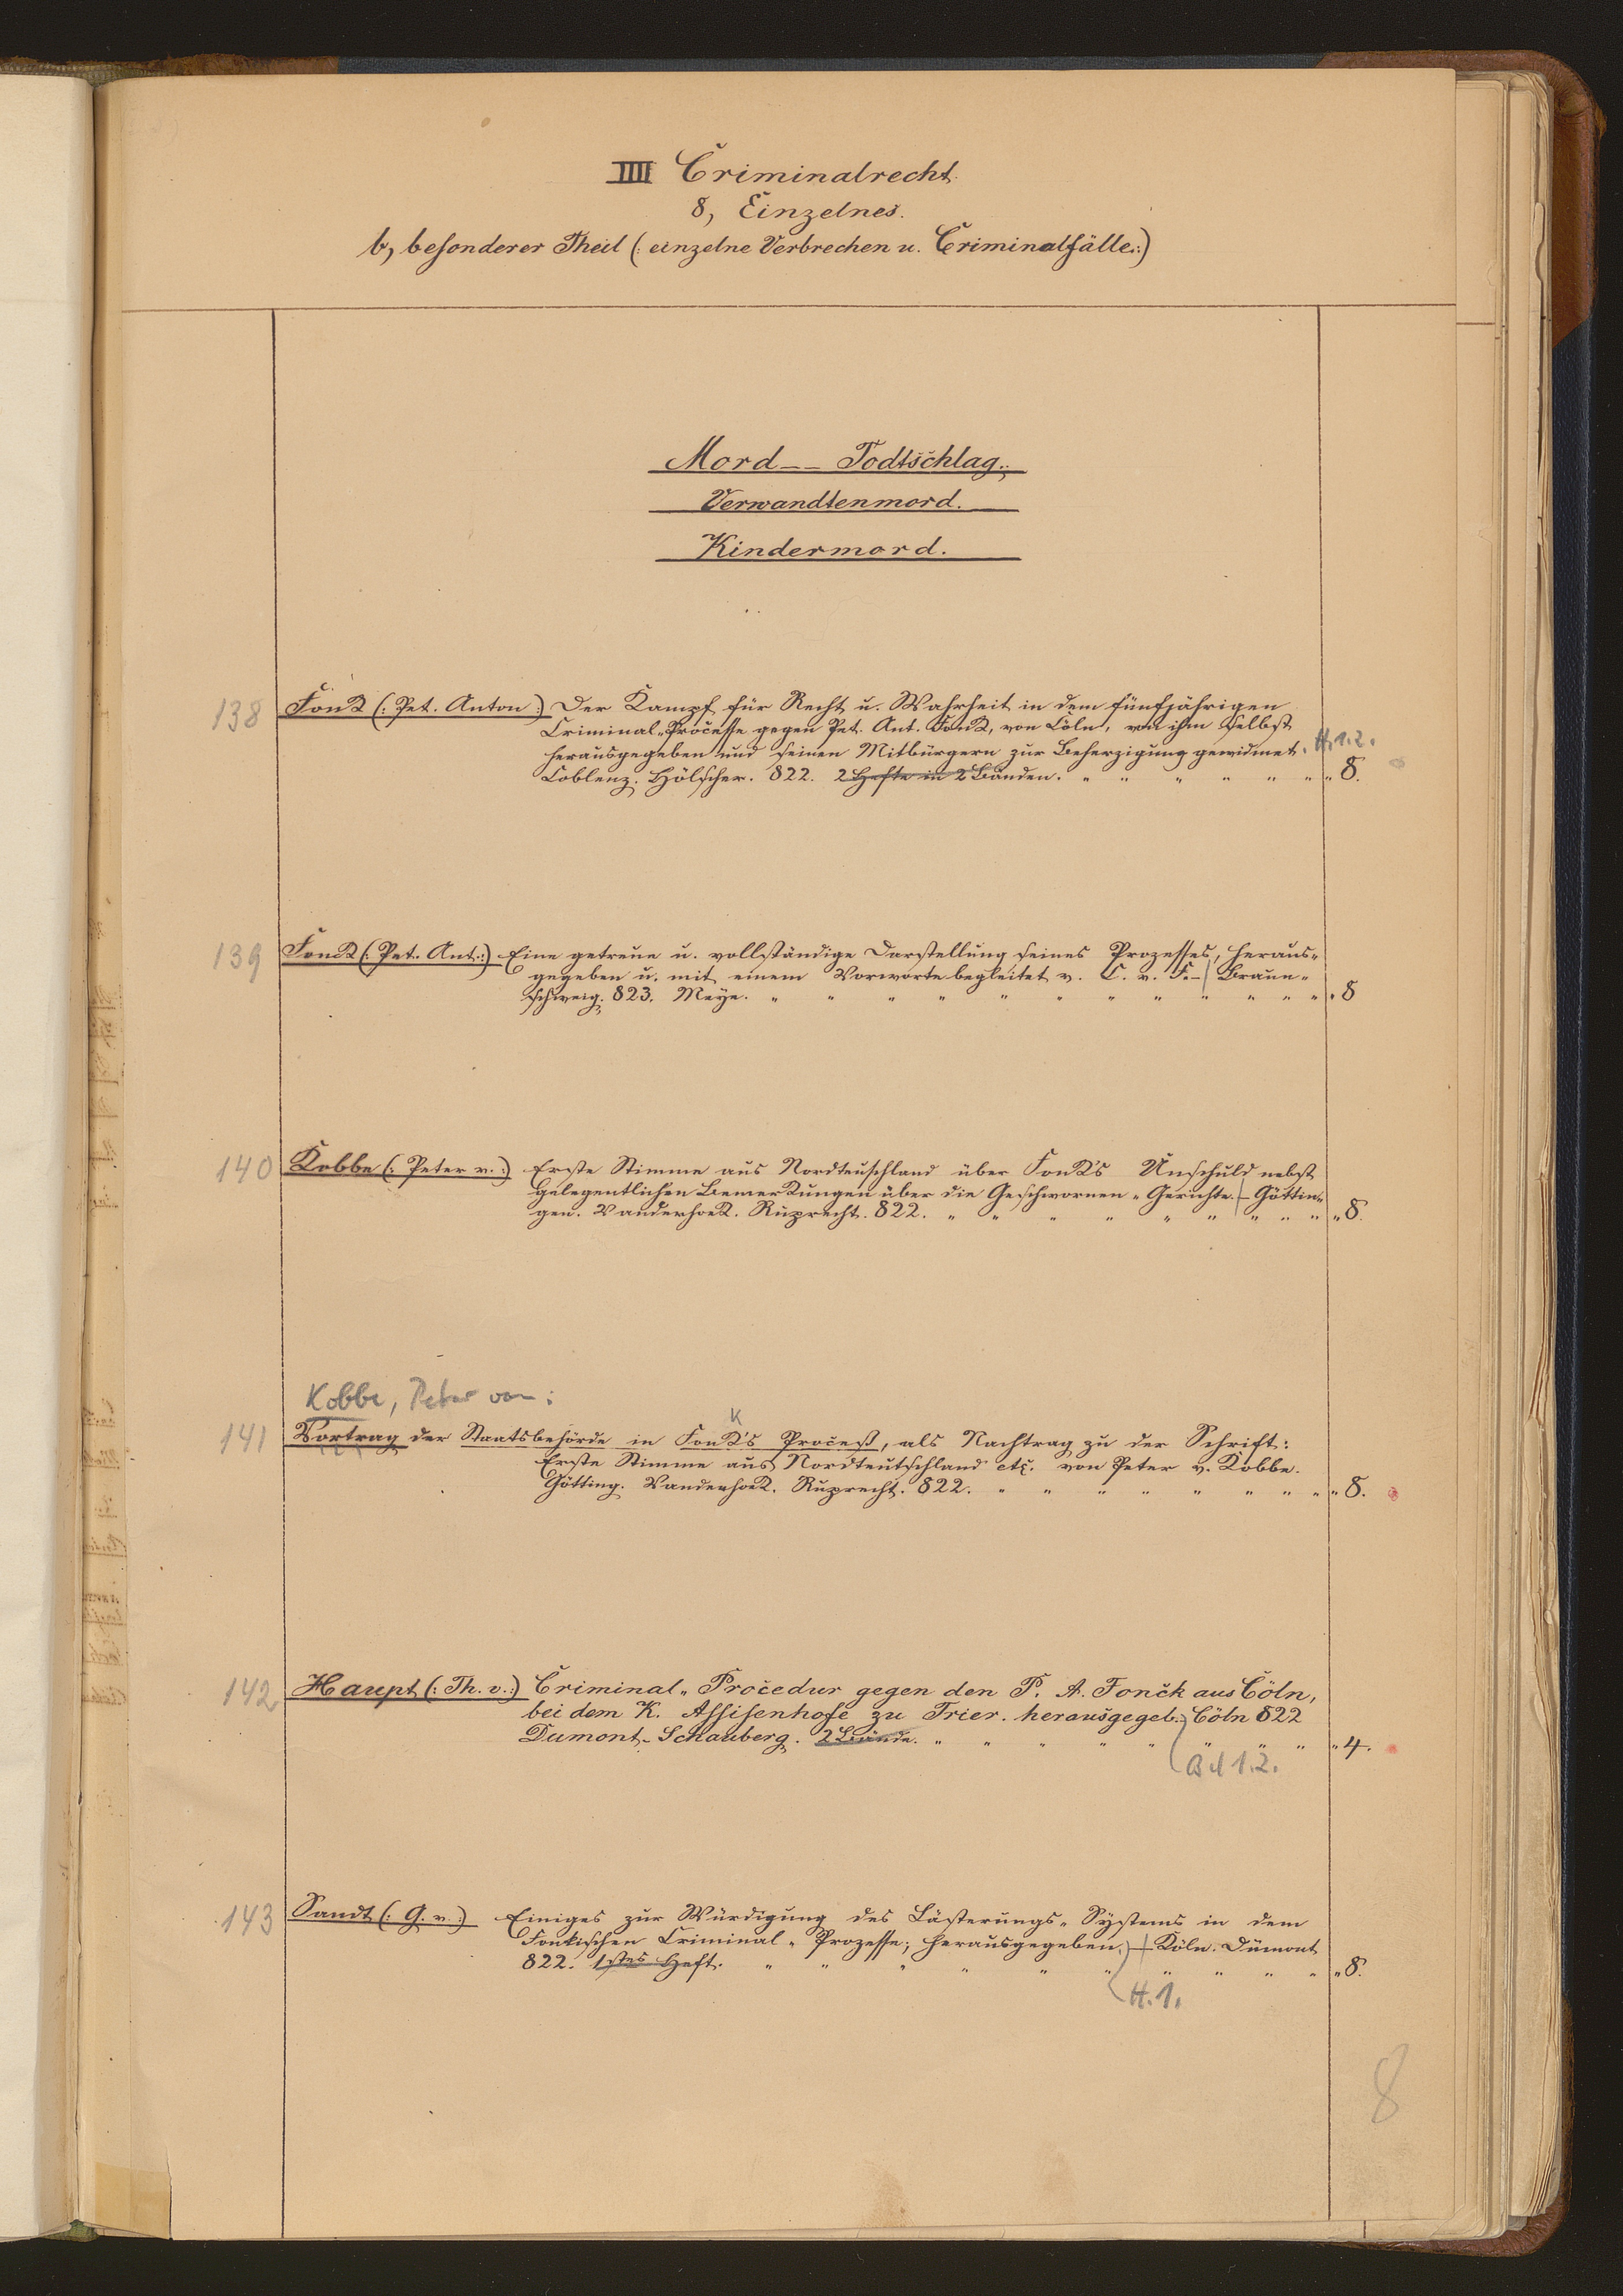 IIII Criminalrecht.
8, Einzelnes.
b, besonderer Theil (: einzelne Verbrechen u. Criminalfälle :)
Mord -- Todtschlag.
Verwandtenmord.
Kindermord.
138 Fonk (: Pet. Anton :) Der Kampf für Recht u. Wahrheit in dem fünfjährigen
Criminal-Processe gegen Pet. Ant. Fonk, von Cöln, von ihm selbst
herausgegeben und seinen Mitbürgern zur Beherzigung gewidmet. H. 1.2.
Coblenz. Hölscher. 822. 2 Hefte in 2 Bänden. " " " " " " " 8.
139 Fonk (: Pet. Ant. :) Eine getreue u. vollständige Darstellung seines Prozesses, heraus-
gegeben u. mit einem Vorworte begleitet v. C. v. F. - Braun-
schweig. 823. Meyer. " " " " " " " " " " " " " 8
140 Kobbe (: Peter v. :) Erste Stimme aus Nordteuschland über Fonk's Unschuld nebst
gelegentlichen Bemerkungen über die Geschwornen-Gerichte. - Göttin-
gen. Vanderhoek. Ruprecht. 822. " " " " " " " " " " 8.
Kobbe, Peter von:
141 Vortrag der Staatsbehörde in Fonk's Proceß, als Nachtrag zu der Schrift:
K
Erste Stimme aus Nordteutschland etc. von Peter v. Kobbe.
Götting. Vanderhoek. Ruprecht. 822. " " " " " " " " " 8.
142 Haupt (: Th. v. :) Criminal-Procedur gegen den P. A. Fonck aus Cöln,
bei dem K. Assisenhofe zu Trier. herausgegeb. Cöln 822
Dumont-Schauberg. 2 Bände. " " " " " " " " " 4.
Bd 1.2.
143 Sandt (: G. v. :) Einiges zur Würdigung des Lästerungs-Systems in dem
Fonkischen Criminal-Prozesse; herausgegeben. - Köln. Dümont
822. 1stes Heft. " " " " " " " " " " " 8.
H. 1.
8